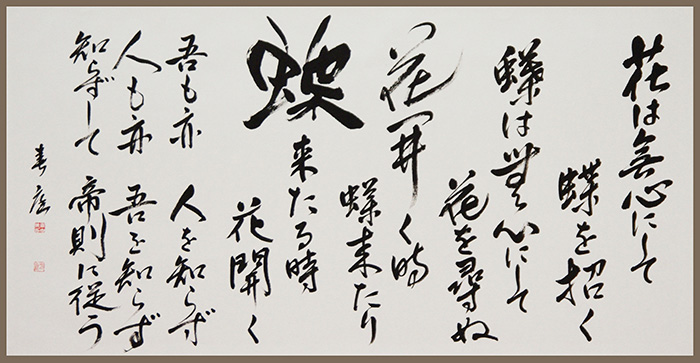 花は無心にして
蝶を招く
蝶は無心にして
花を尋ぬ
花開く時
蝶来たり
蝶来たる時
花開く
吾も亦
人を知らず
人も亦
吾を知らず
知らずして
帝則に従う